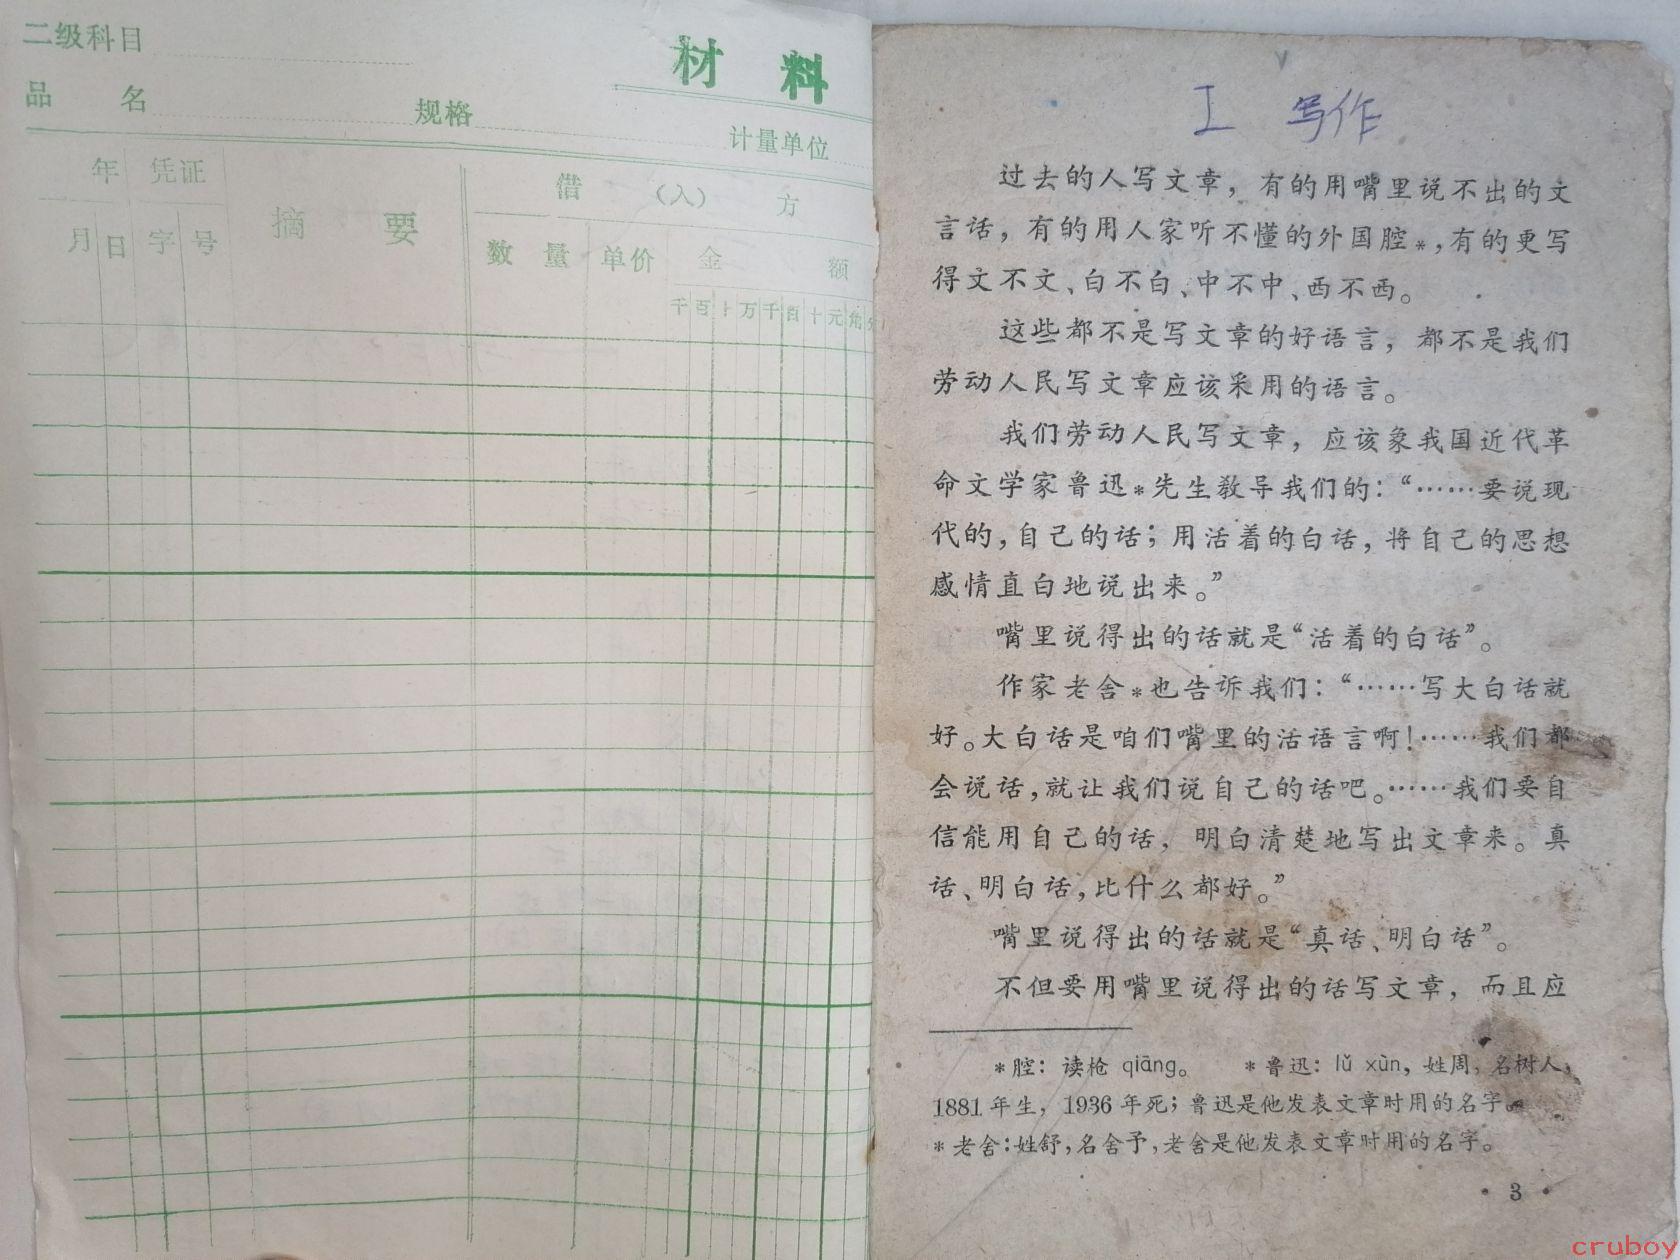 二级科目
材 料
品 名
规格
计量单位
年 凭证
摘 要
借 (入) 方
月 日 字 号
数 量 单价 金 额
千 百 十 万 千 百 十 元 角 分
I 写作
过去的人写文章，有的用嘴里说不出的文
言话，有的用人家听不懂的外国腔*，有的更写
得文不文、白不白、中不中、西不西。
这些都不是写文章的好语言，都不是我们
劳动人民写文章应该采用的语言。
我们劳动人民写文章，应该象我国近代革
命文学家鲁迅*先生教导我们的：“……要说现
代的，自己的话；用活着的白话，将自己的思想
感情直白地说出来。”
嘴里说得出的话就是“活着的白话”。
作家老舍*也告诉我们：“……写大白话就
好。大白话是咱们嘴里的活语言啊！……我们都
会说话，就让我们说自己的话吧。……我们要自
信能用自己的话，明白清楚地写出文章来。真
话、明白话，比什么都好。”
嘴里说得出的话就是“真话、明白话”。
不但要用嘴里说得出的话写文章，而且应
*腔：读枪 qiāng。 *鲁迅：lǔ xùn，姓周，名树人，
1881年生，1936年死；鲁迅是他发表文章时用的名字。
*老舍：姓舒，名舍予，老舍是他发表文章时用的名字。
· 3 ·
cruboy